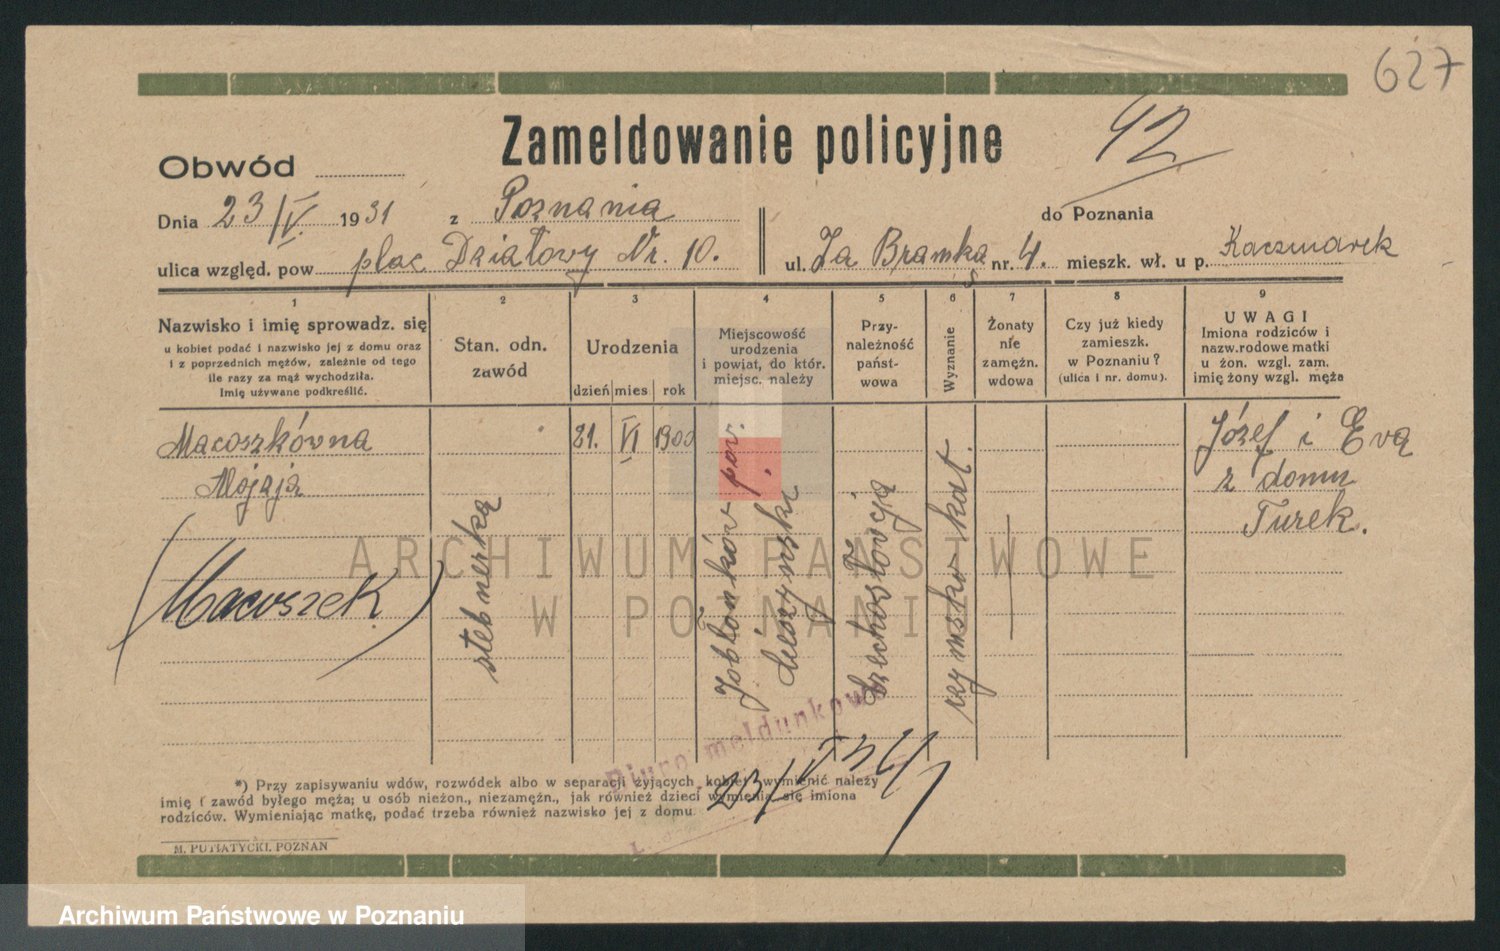 627
Zameldowanie policyjne
42
Obwód
Dnia 23/IV. 1931 z Poznania
do Poznania
ulica względ. pow plac Działowy Nr. 10.
ul. Za Bramką nr. 4. mieszk. wł. u p. Kaczmarek
1
Nazwisko i imię sprowadz. się
u kobiet podać i nazwisko jej z domu oraz
i z poprzednich mężów, zależnie od tego
ile razy za mąż wychodziła.
Imię używane podkreślić.
2
Stan. odn.
zawód
3
Urodzenia
dzień mies rok
4
Miejscowość
urodzenia
i powiat, do któr.
miejsc. należy
5
Przy-
należność
państ-
wowa
6
Wyznanie
7
Żonaty
nie
zamężn.
wdowa
8
Czy już kiedy
zamieszk.
w Poznaniu?
(ulica i nr. domu).
9
UWAGI
Imiona rodziców i
nazw.rodowe matki
u żon. wzgl. zam.
imię żony wzgl. męża
Macoszkówna
(Macoszek)
21. VI 1900
Jabłonków pow.
Czechosłowcja
rzymsko kat.
Józef i Evą
z domu
Turek.
ARCHIWUM PAŃSTWOWE
W POZNANIU
Biuro meldunkowe
23/IV
*) Przy zapisywaniu wdów, rozwódek albo w separacji żyjących, kobiet wymienić należy
imię i zawód byłego męża; u osób nieżon., niezamężn., jak również dzieci wymienia się imiona
rodziców. Wymieniając matkę, podać trzeba również nazwisko jej z domu.
M. PUTIATYCKI. POZNAN
Archiwum Państwowe w Poznaniu